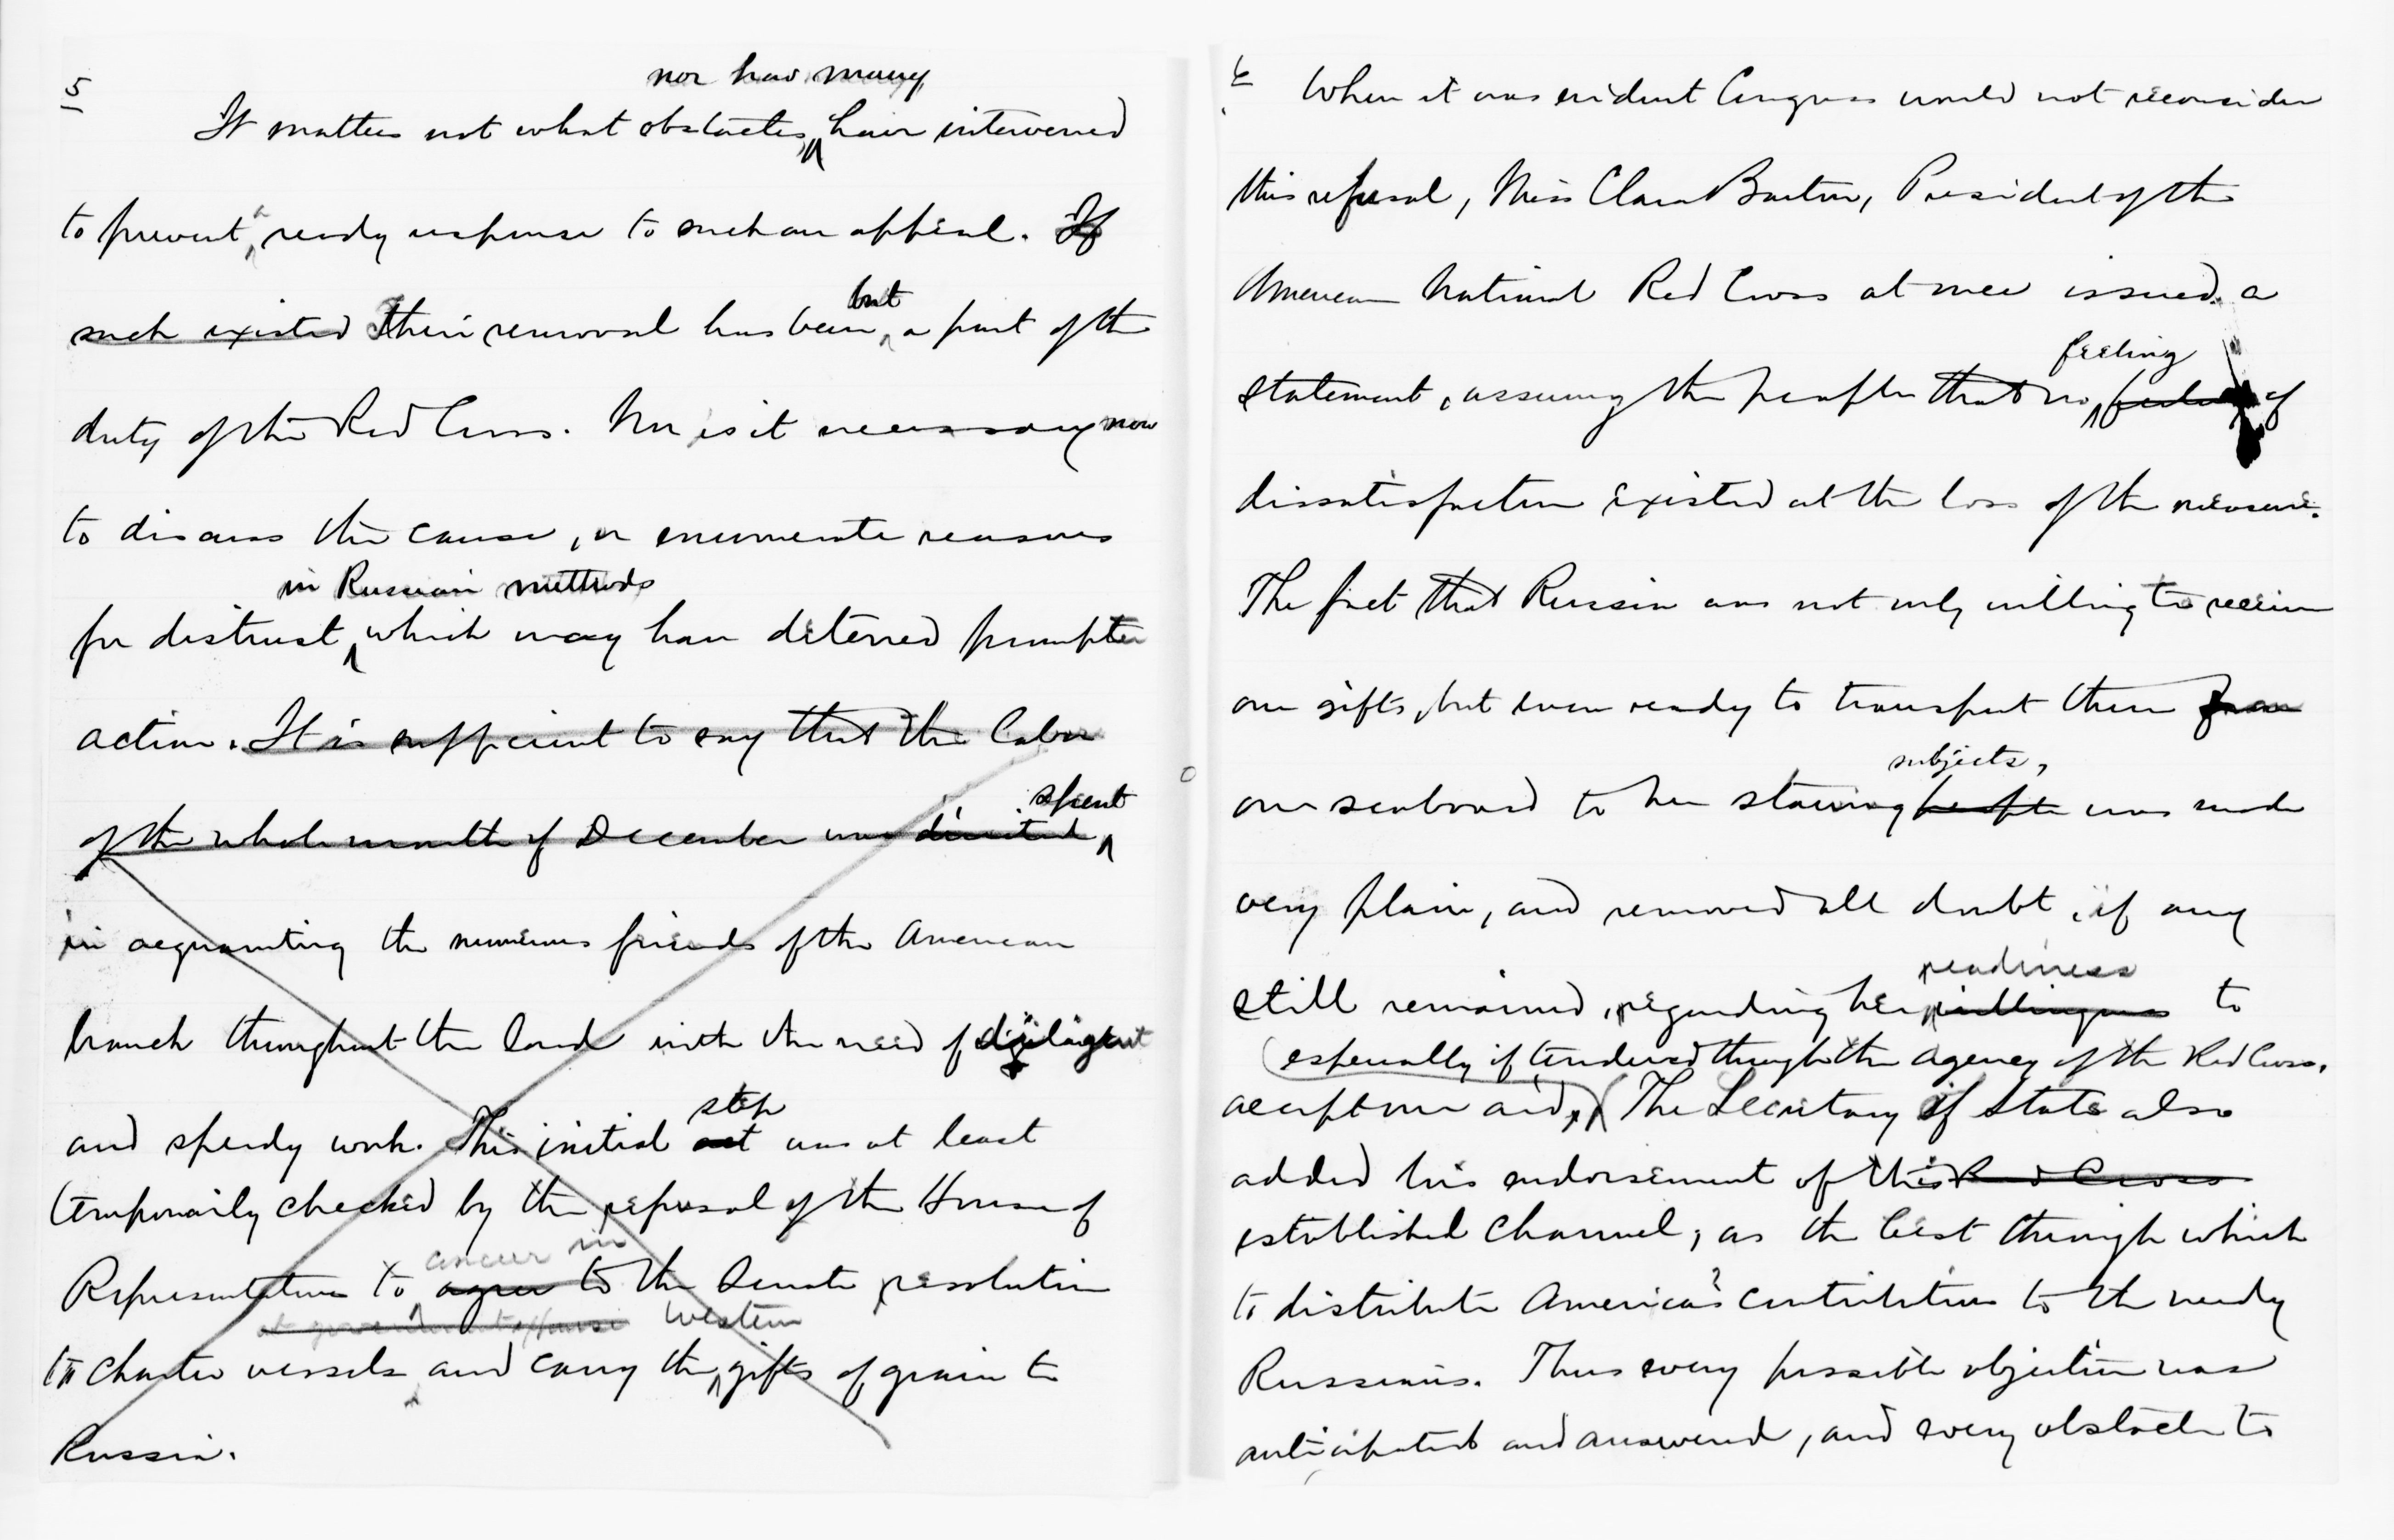 5
nor how many,
It matters not what obstacles, have intervened
to prevent a ready response to such an appeal. If
such existed Their removal has been but a part of the
duty of the Red Cross. Nor is it necessary now
to discuss the cause, or enumerate reasons
in Russian methods
for distrust, which may have deterred prompter
action. It is sufficient to say that the labor
spent
of the whole month of December was devoted
in acquainting the numerous friends of the American
branch throughout the land with the need of diligent
step
and speedy work. This initial act was at least
temporarily checked by the refusal of the House of
concur in
Representatives to agree to the Senate resolution
at government expense Western
to charter vessels and carry the gifts of grain to
Russia.
6
When it was evident Congress would not reconsider
this refusal, Miss Clara Barton, President of the
American National Red Cross at once issued a
feeling
statement, assuring the people that no of
dissatisfaction existed at the loss of the measure.
The fact that Russia was not only willing to receive
our gifts, but even ready to transport them from
subjects,
our seaboard to her starving people was made
very plain, and removed all doubt, if any
readiness
still remained, regarding her willingness to
especially if tendered through the agency of the Red Cross.
accept our aid, The Secretary of State also
added his endorsement of this Red Cross
established channel, as the best through which
to distribute America's contributions to the needy
Russians. Thus every possible objection was
anticipated and answered, and every obstacle to